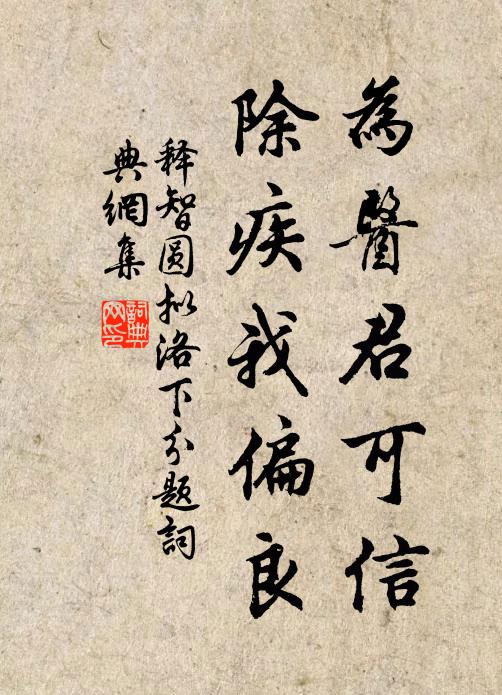 為醫君可信
除疾我偏良
释智圆拟洛下分题詞
典網集
詞典網印